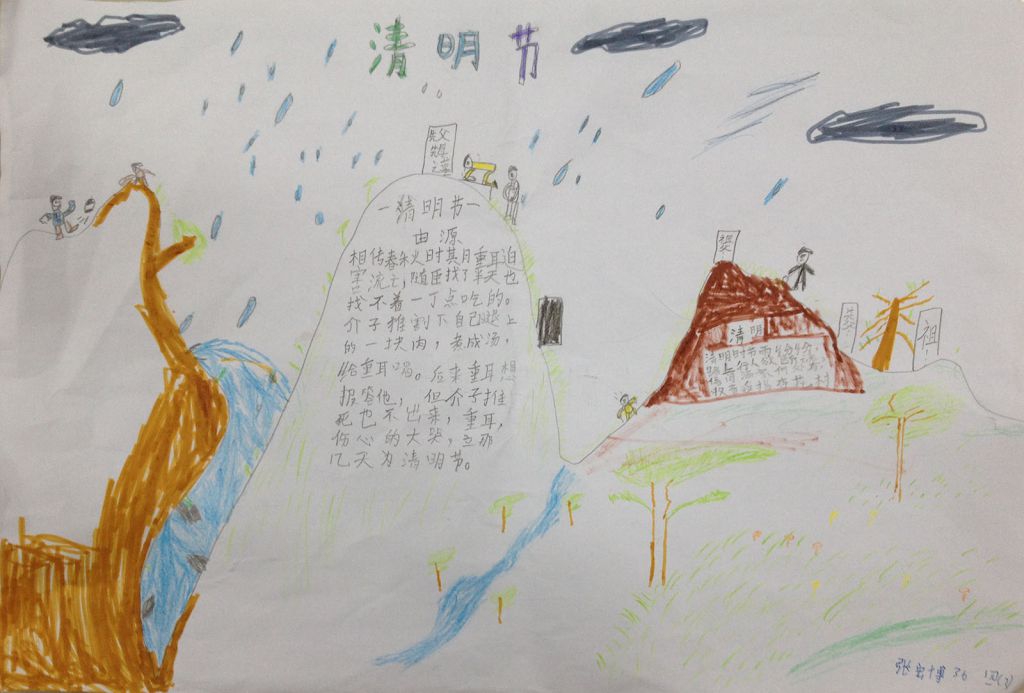 清明节
先父
一清明节一
由源
相传春秋时其月重耳迫
害流亡,随臣找了半天也
找不着一丁点吃的。
介子推割下自己腿上
的一块肉,煮成汤,
给重耳喝。后来重耳想
报答他,但介子推
死也不出来,重耳,
伤心的大哭,立那
几天为清明节。
清明
清明时节雨纷纷,
路上行人欲断魂
借问酒家何处有,
祖
张宏博 36 四(3)